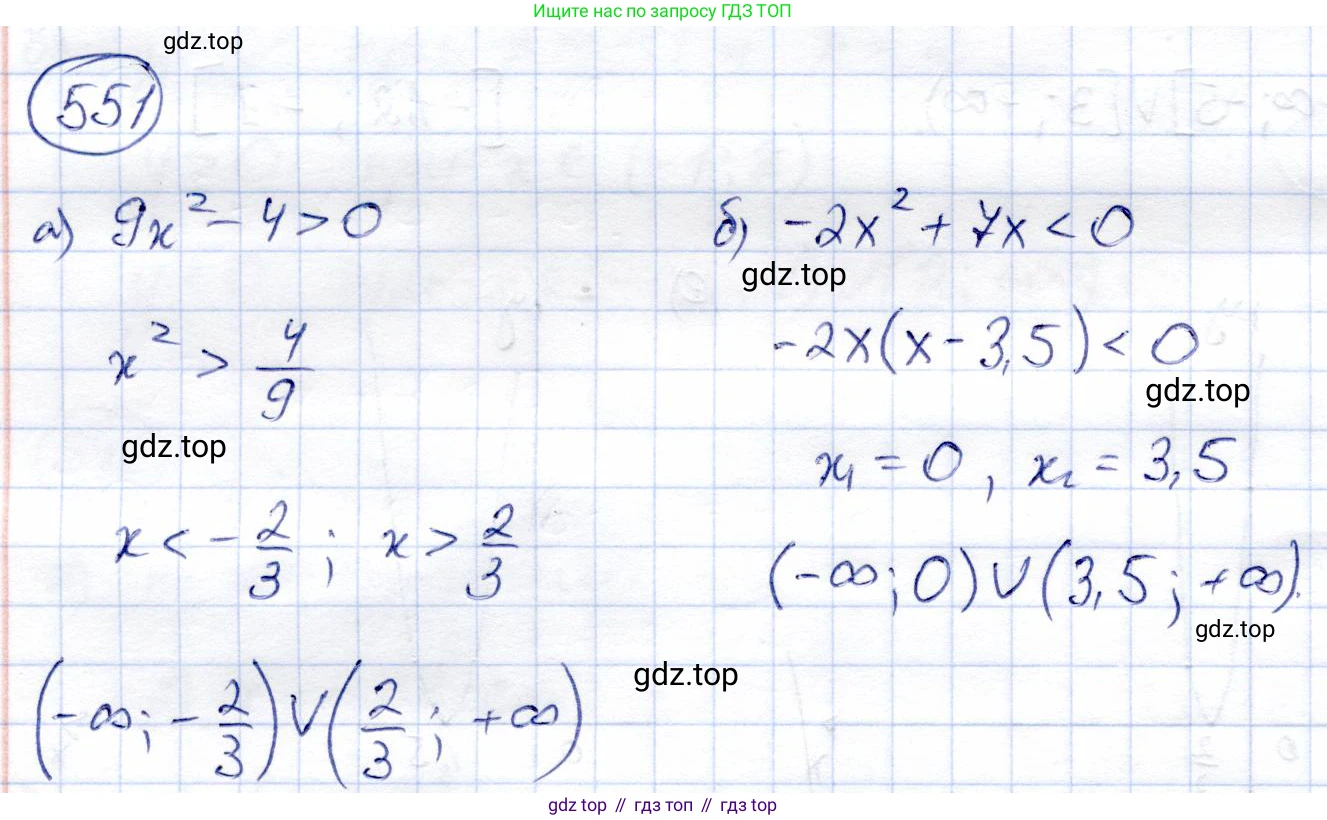 Ищите нас по запросу ГДЗ ТОП
gdz.top
551
а) 9x² - 4 > 0
x² > 4/9
gdz.top
x < - 2/3 ; x > 2/3
(-∞; - 2/3) ∨ (2/3 ; +∞)
б) -2x² + 7x < 0
gdz.top
-2x(x - 3,5) < 0
gdz.top
x₁ = 0, x₂ = 3,5
(-∞; 0) ∨ (3,5; +∞).
gdz.top
gdz.top
gdz top // гдз топ // gdz top